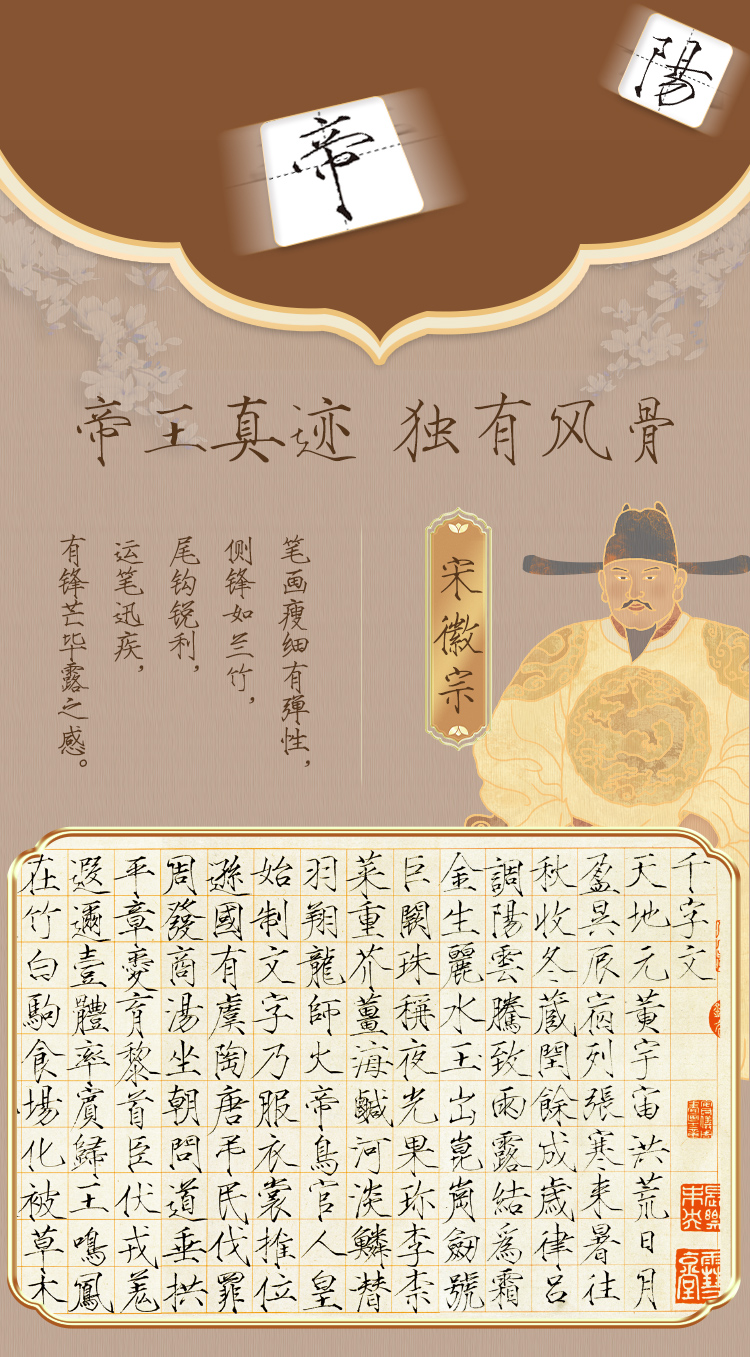 陽
帝
帝王真迹 独有风骨
宋徽宗
笔画瘦细有弹性，
侧锋如兰竹，
尾钩锐利，
运笔迅疾，
有锋芒毕露之感。
千字文
天地元黃宇宙洪荒日月
盈昃辰宿列張寒来暑往
秋收冬蔵閏餘成歲律吕
調陽雲騰致雨露結為霜
金生麗水玉出崑崗劒號
巨闕珠稱夜光果珎李柰
菜重芥薑海鹹河淡鱗潜
羽翔龍師火帝鳥官人皇
始制文字乃服衣裳推位
遜國有虞陶唐弔民伐罪
周發商湯坐朝問道垂拱
平章愛育黎首臣伏戎羗
遐邇壹體率賓歸王鳴鳳
在竹白駒食場化被草木